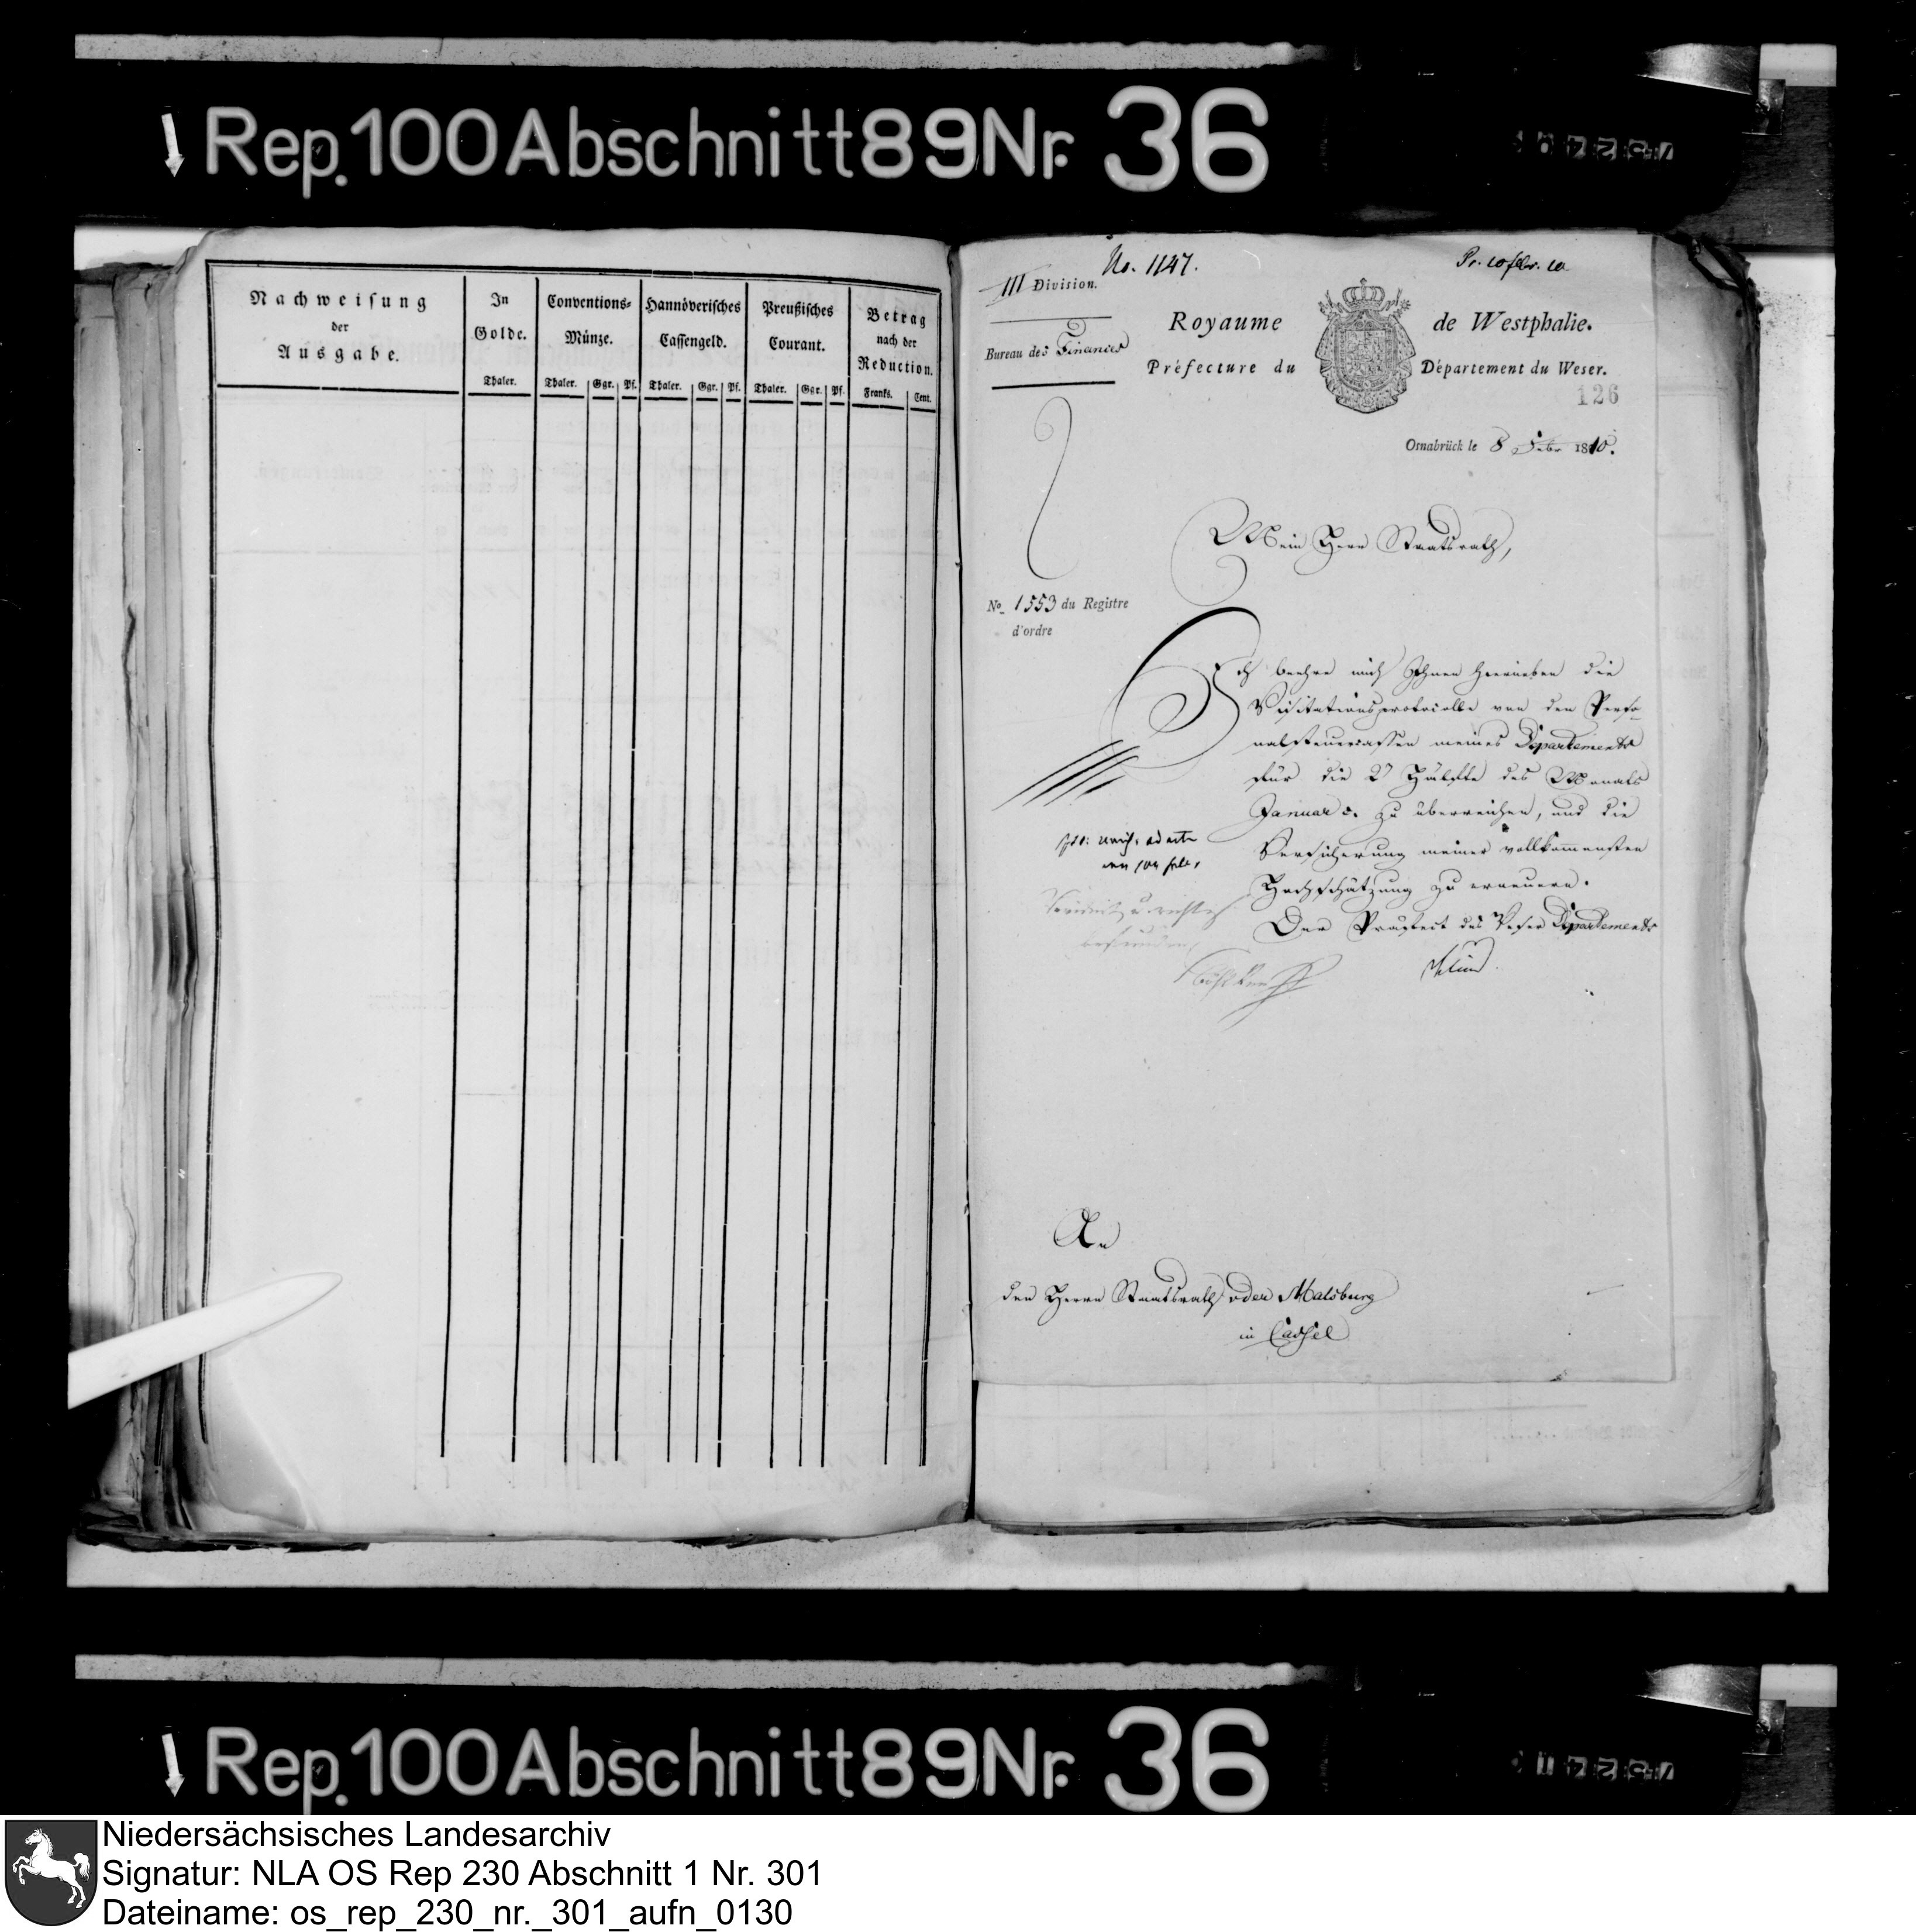 Rep. 100 Abschnitt 89 Nr. 36
Nachweisung
der
Ausgabe.
In
Golde.
Thaler.
Conventions-
Münze.
Thaler. Ggr. Pf.
Hannöverisches
Cassengeld.
Thaler. Ggr. Pf.
Preußisches
Courant.
Thaler. Ggr. Pf.
Betrag
nach der
Reduction.
Franks. Cent.
No. 1147.
III Division.
Bureau des Finances
Royaume de Westphalie.
Préfecture du Département du Weser.
126
Osnabrück le 8 Febr 1810.
Mein Herr Staatsrath,
No. 1553 du Registre
d'ordre
Ich beehre mich Ihnen hierneben die
Visitationsprotocolle von den Perso-
nalsteuercassen meines Departements
für die 2 Hälfte des Monats
Januar c. zu überreichen, und die
Versicherung meiner vollkommensten
Hochschätzung zu erneuern.
Der Praefect des Weser Departements
An
den Herrn Staatsrath von der Malsburg
in Cassel
Rep. 100 Abschnitt 89 Nr. 36
Niedersächsisches Landesarchiv
Signatur: NLA OS Rep 230 Abschnitt 1 Nr. 301
Dateiname: os_rep_230_nr._301_aufn_0130